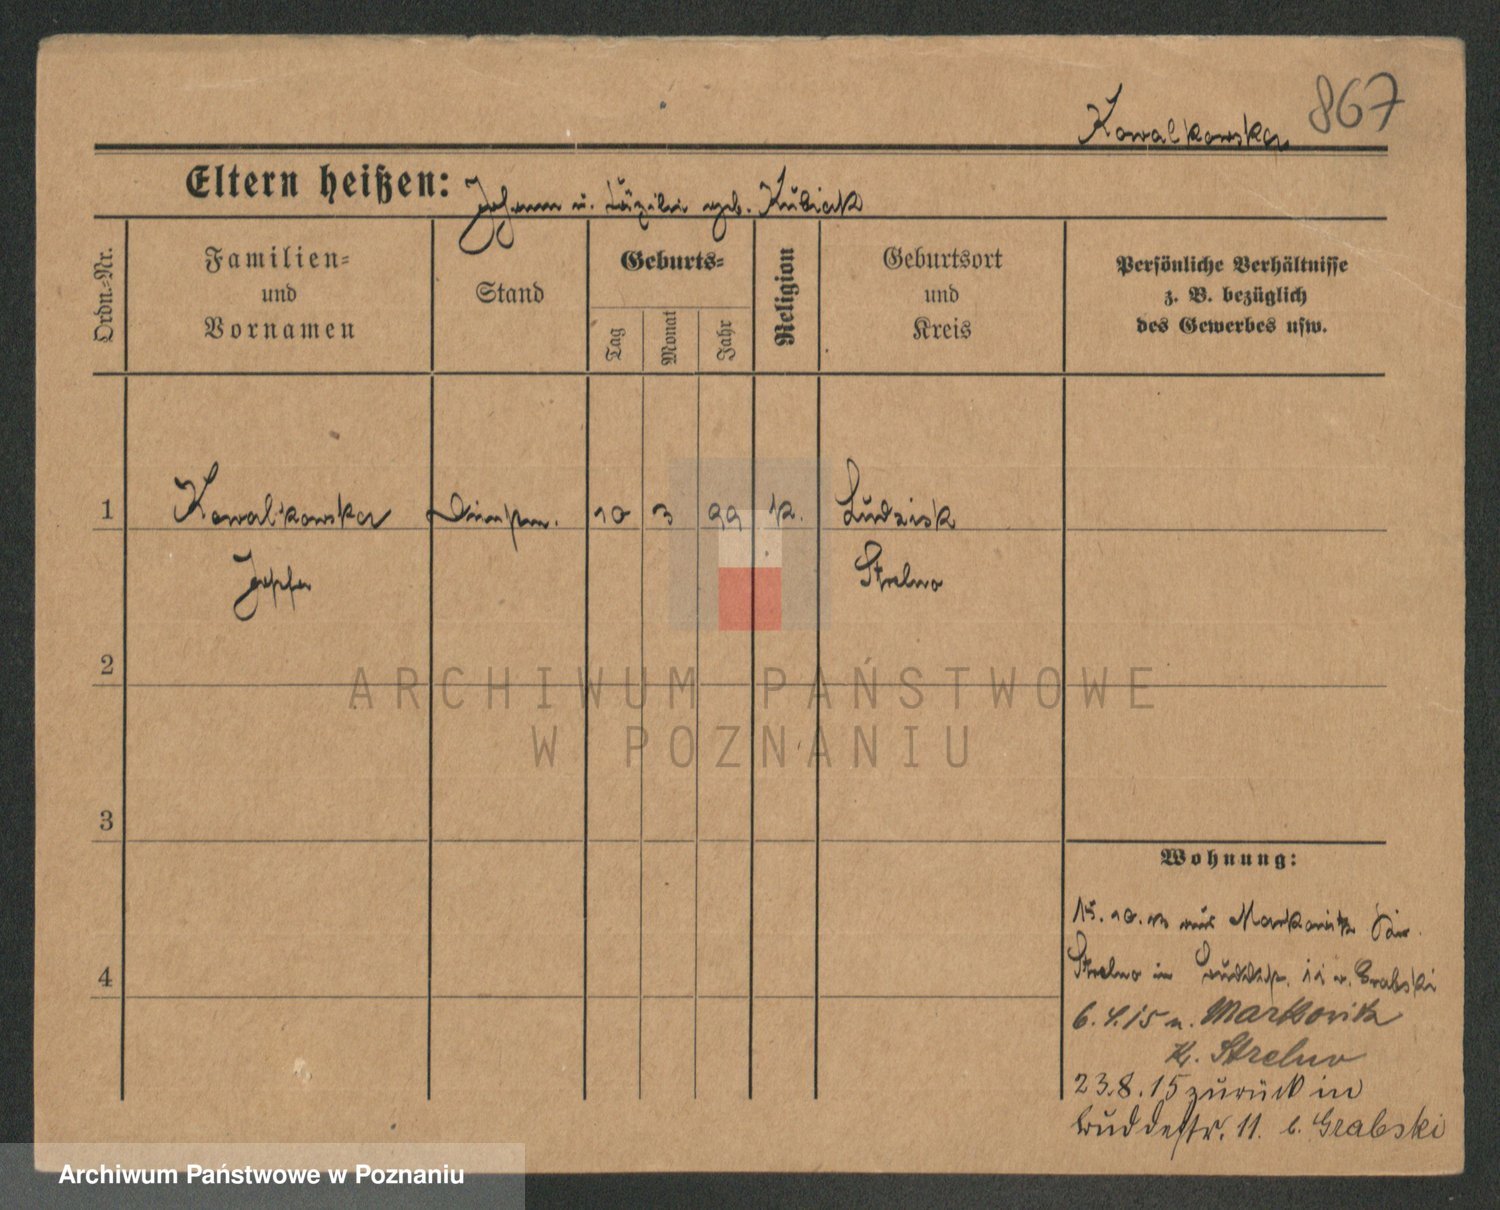 867
Kowalkowska
Eltern heißen: Johann u. Cäzilie geb. Kubiak
Ordn.-Nr.
Familien-
und
Vornamen
Stand
Geburts-
Tag
Monat
Jahr
Religion
Geburtsort
und
Kreis
Persönliche Verhältnisse
z. B. bezüglich
des Gewerbes usw.
1 Kowalkowska 10 3 99 k. Ludzisk
Josefa Strelno
2
ARCHIWUM PAŃSTWOWE
W POZNANIU
3
Wohnung:
15. 10. 13 aus Markowitz
Strelno in 11 b. Grabski
4
6.4.15 n. Markowitz
Kr. Strelno
23.8.15 zurück in
Buddestr. 11. b. Grabski
Archiwum Państwowe w Poznaniu